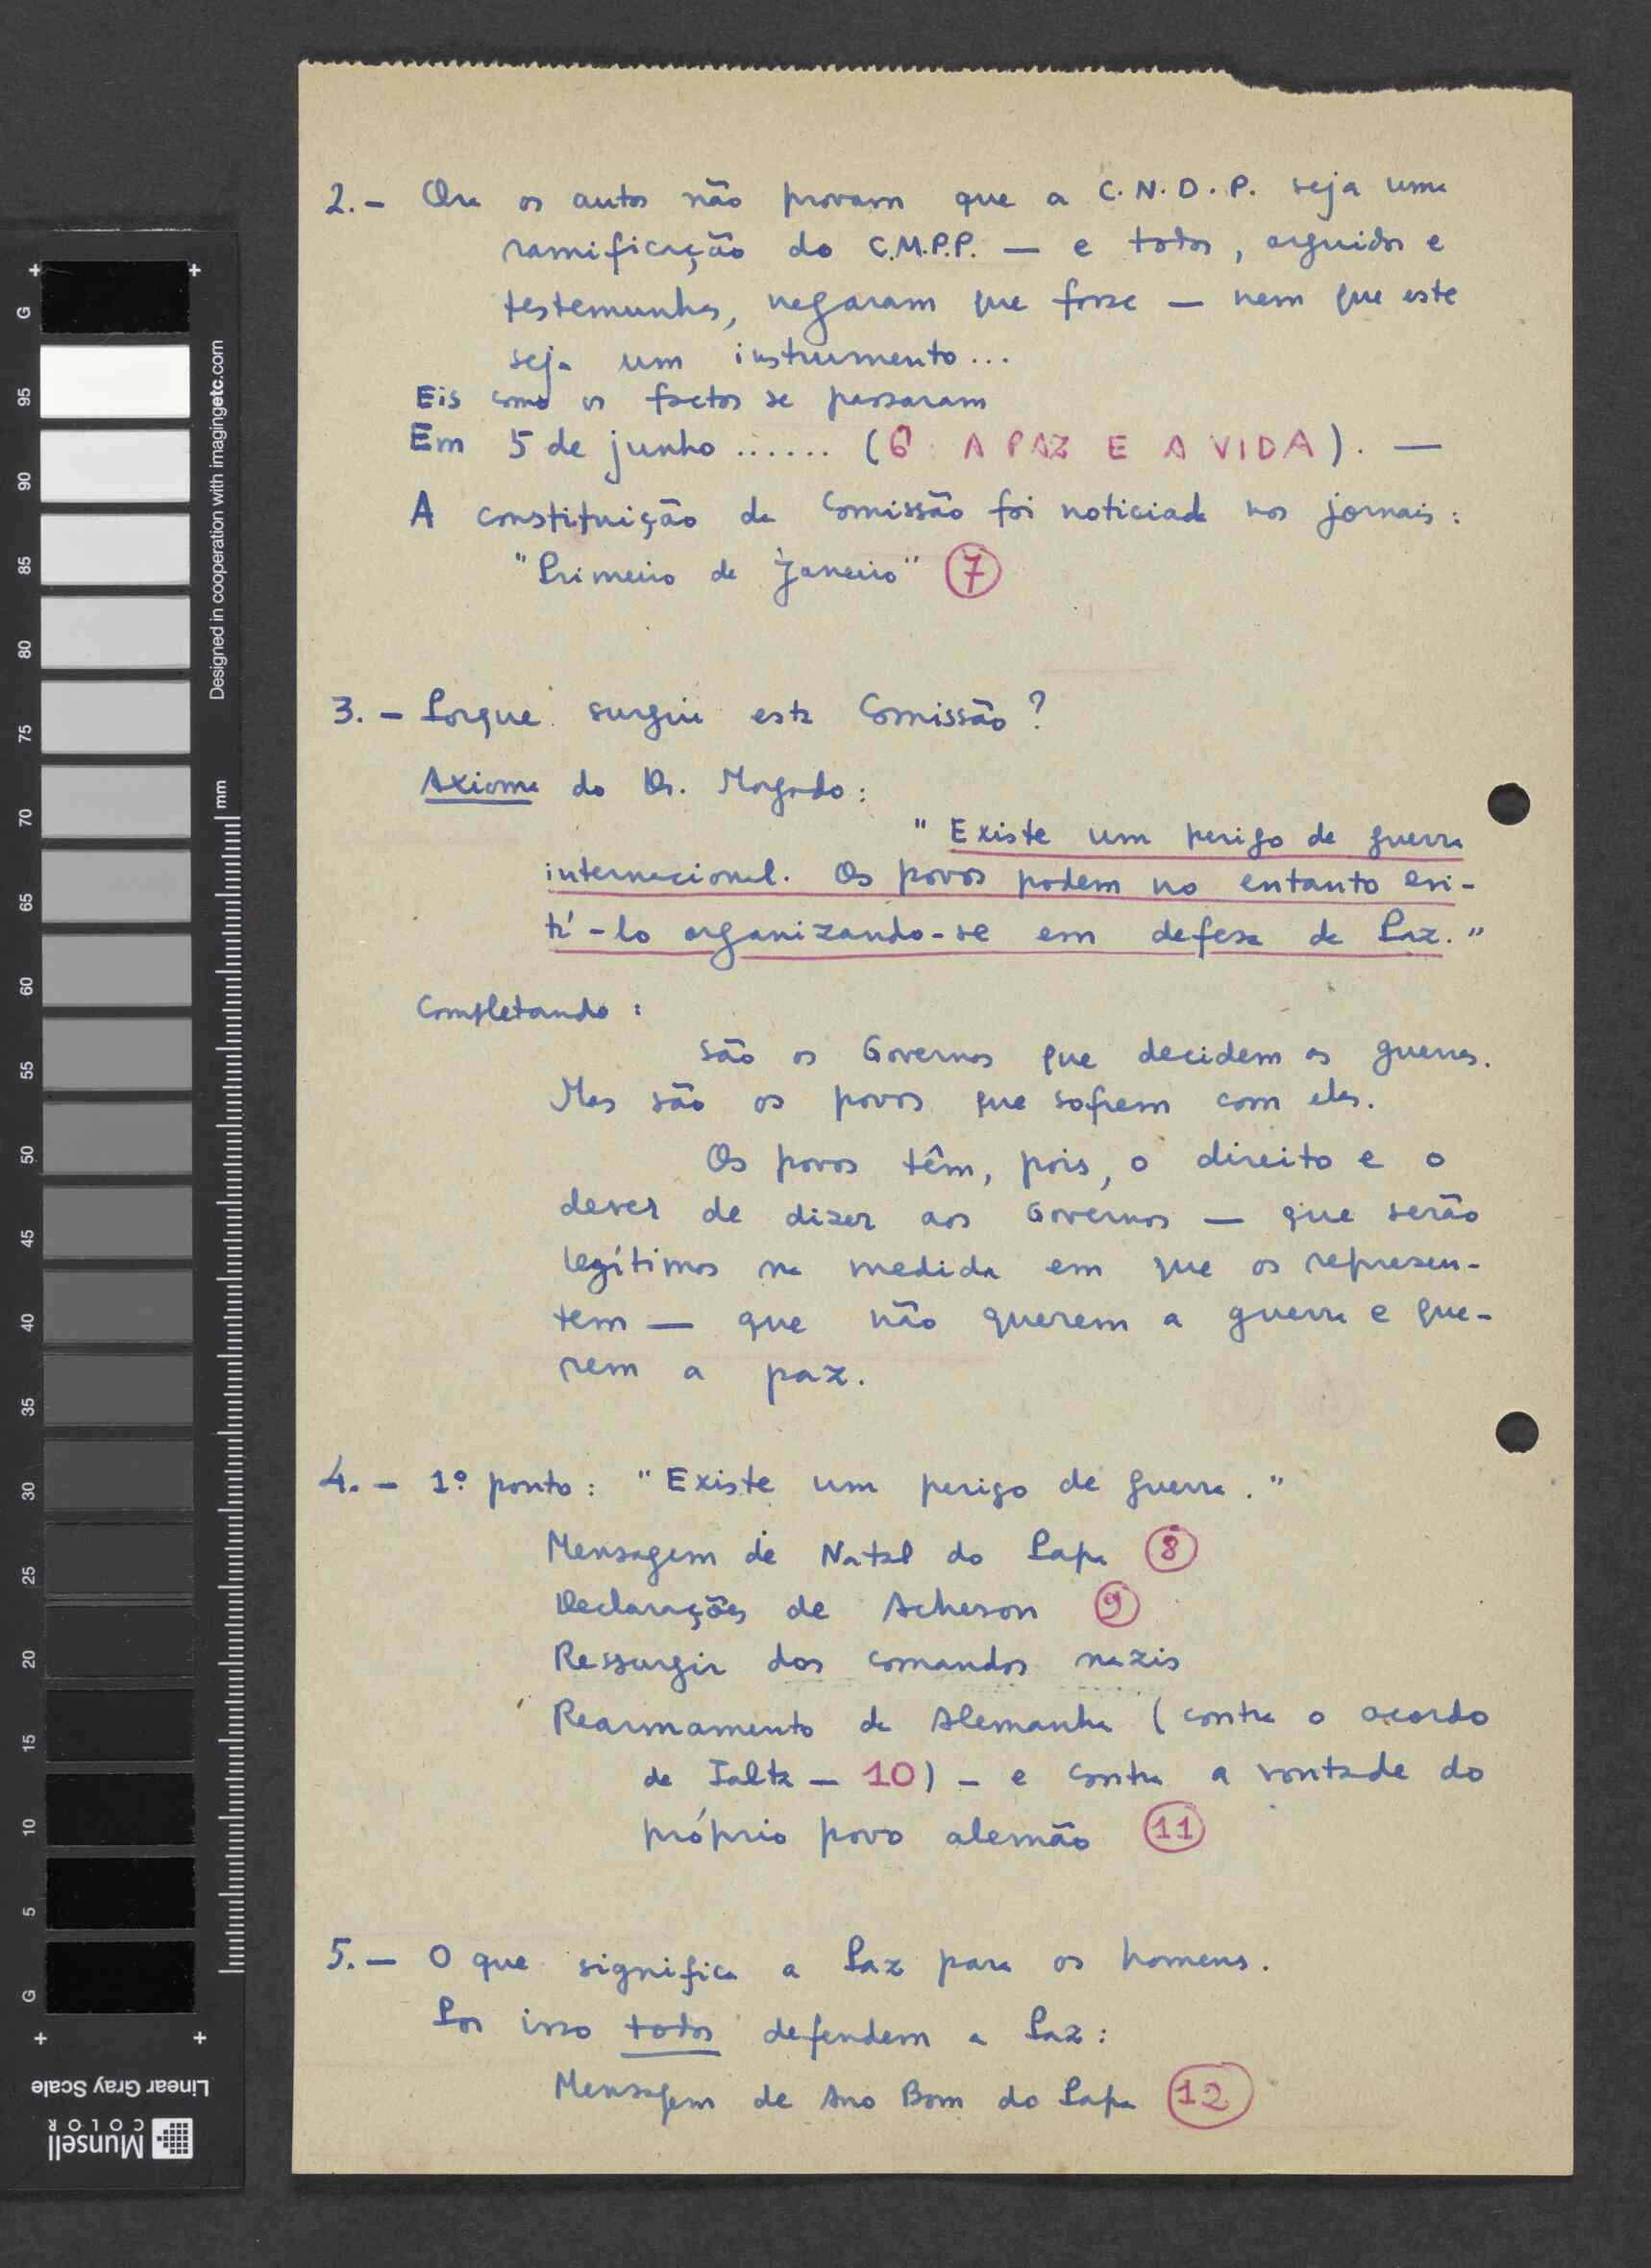 2.- Ora os autos não provam que a C.N.D.P. seja uma
ramificação do C.M.P.P. — e todos, arguidos e
testemunhas, negaram que fosse — nem que este
seja um instrumento...
Eis como os factos se passaram
Em 5 de junho ...... (6 A PAZ E A VIDA). —
A constituição da Comissão foi noticiada nos jornais:
"Primeiro de Janeiro" 7
3. - Porque surgiu esta Comissão?
Axioma do Dr. Morgado:
"Existe um perigo de guerra
internacional. Os povos podem no entanto evi-
tá-lo organizando-se em defesa da Paz."
Completando:
São os Governos que decidem as guerras.
Mas são os povos que sofrem com elas.
Os povos têm, pois, o direito e o
dever de dizer aos Governos — que serão
legítimos na medida em que os represen-
tem — que não querem a guerra e que-
rem a paz.
4. - 1º ponto: "Existe um perigo de guerra."
Mensagem de Natal do Papa 8
Declarações de Acheson 9
Ressurgir dos comandos nazis
Rearmamento da Alemanha (contra o acordo
de Ialta - 10) - e contra a vontade do
próprio povo alemão 11
5. - O que significa a Paz para os homens.
Por isso todos defendem a Paz:
Mensagem de Ano Bom do Papa 12
G
95
90
85
80
75
70
65
60
55
50
45
40
35
30
25
20
15
10
5
G
Designed in cooperation with imagingetc.com
mm
Linear Gray Scale
Munsell
COLOR